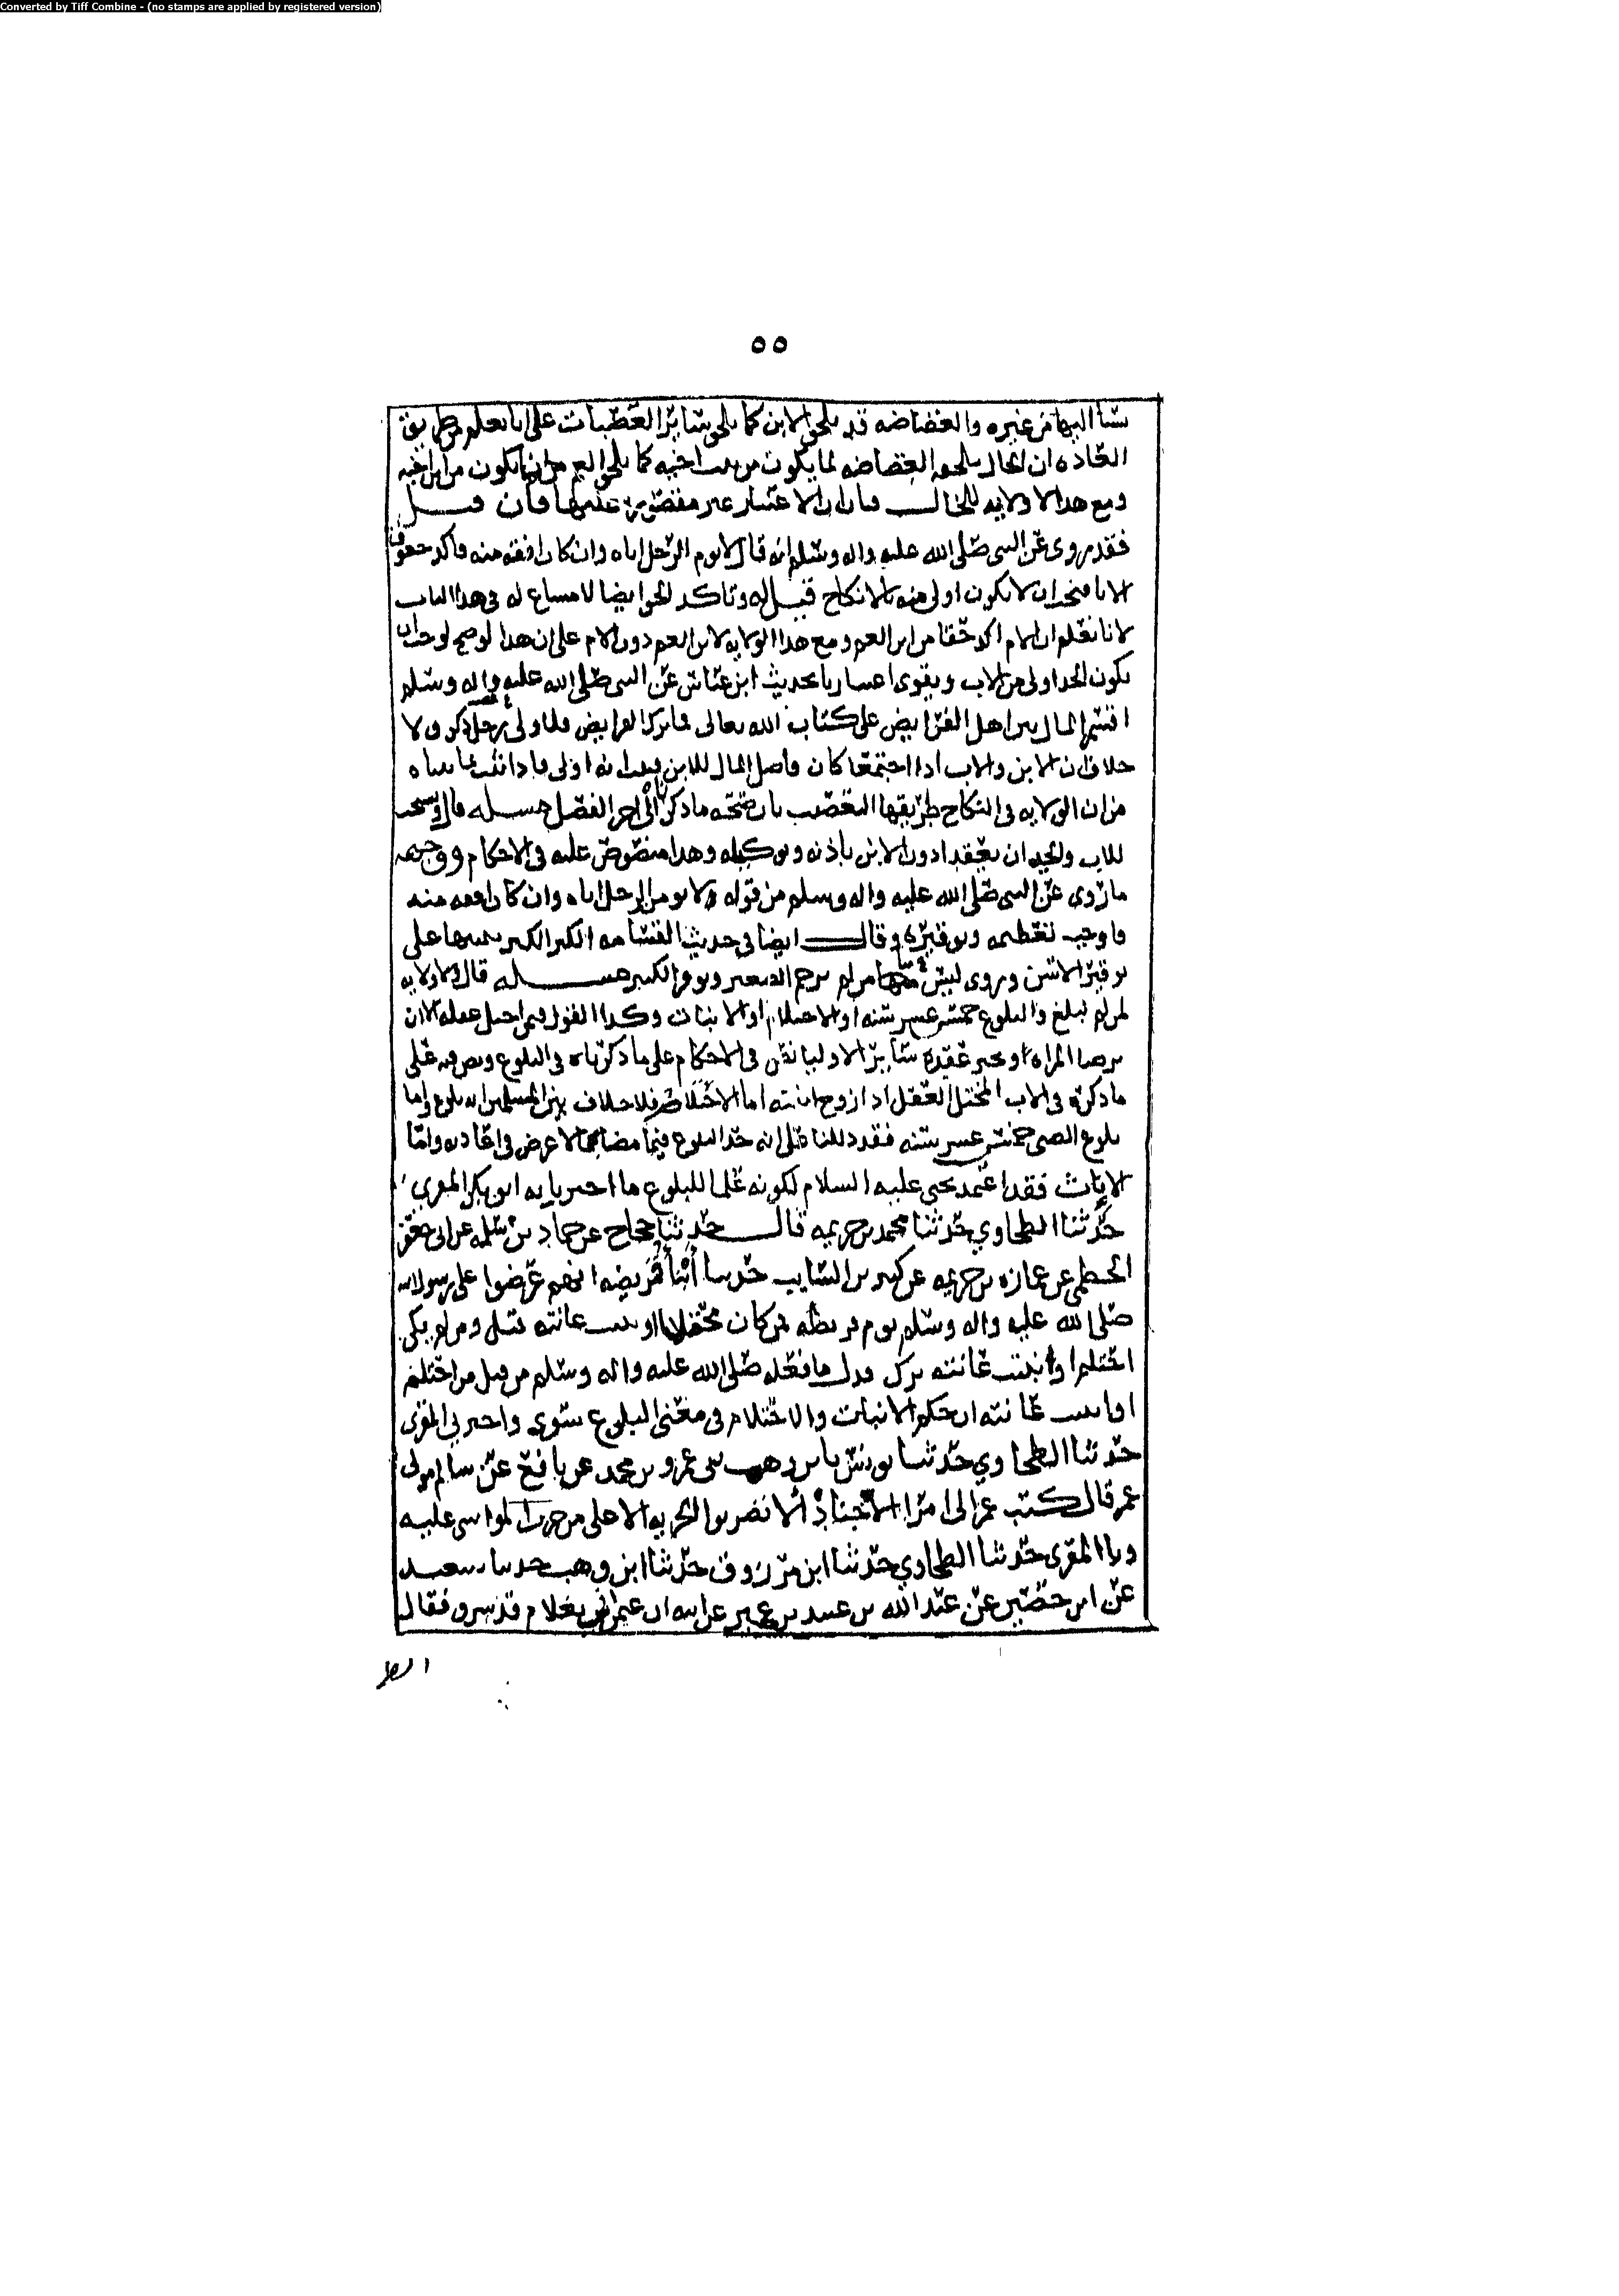 Converted by Tiff Combine - (no stamps are applied by registered version)
٥٥
اليها من غيره والغضاضه قد يلحق الابن كما يلحق سائر العصبات على انا نعلم من طريق
العاده ان الخال يلحقه الغضاضه لما يكون من بنت اخته كما يلحق العم
ومع هذا لا ولايه للخال الاعتبار غير مقصور عليها فان قيل
فقد روى عن النبي صلى الله عليه واله وسلم انه قال لا يوم الرجل اباه وان كان افقه منه فاكد حقوق
الابا فيجب ان لا يكون اولى منه بالانكاح قيل له وتاكد الحق ايضا لا مساغ له في هذا الباب
لانا نعلم ان الام اكد حقا من ابن العم ومع هذا الولايه لابن العم دون الام على ان هذا لو صح لوجب ان
يكون الجد اولى من الاب ويقوى اعتبارنا بحديث ابن عباس عن النبي صلى الله عليه واله وسلم
اقسم المال بين اهل الفرايض على كتاب الله تعالى فما ترك الفرايض فلاولى رجل ذكر ولا
خلاف ان الابن والاب اذا اجتمعا كان فاضل المال للابن اولى فاذا ثبت ما بيناه
من ان الولايه في النكاح طريقها التعصيب بان صحه ما ذكرنا الى اخر الفصل مسله قال ويستحب
للاب والجد ان يعقدا دون الابن باذنه وتوكيله وهذا منصوص عليه في الاحكام ووجهه
ما روى عن النبي صلى الله عليه واله وسلم من قوله ولا يومن الرجل اباه وان كان افقه منه
فاوجب تعظيمه وتوقيره وقال ايضا في حديث القسامه الكبر الكبر تنبيها على
توقير الاسن وروى ليس منا من لم يرحم الصغير ويوقر الكبير مسله قال ولا ولايه
لمن لم يبلغ والبلوغ خمس عشر سنه او الاحتلام او الانبات وكذا القول فيمن اختل عقله الا ان
المراه او يجيز عقده سائر الاوليا نص في الاحكام على ما ذكرناه في البلوغ ونص فيه على
ما ذكره في الاب المختل العقل اذا زوج ابنته اما الاحتلام فلا خلاف بين المسلمين انه بلوغ واما
بلوغ الصبي خمس عشر سنه فقد دللنا على انه حد البلوغ فيما مضا واما
الانبات فقد اعتمد يحيى عليه السلام لكونه علما للبلوغ ما اخبرنا به ابو بكر المقري
حدثنا الطحاوي حدثنا محمد بن خزيمه قال حدثنا حجاج عن حماد بن سلمه عن ابي جعفر
الخطمي عن عماره بن خزيمه عن كثير بن السايب حدثنا ابنا قريضه انهم عرضوا على رسول الله
صلى الله عليه واله وسلم يوم قريظه فمن كان محتلما او نبتت عانته قتل ومن لم يكن
احتلم او انبتت عانته ترك فدل ما فعله صلى الله عليه واله وسلم من قتل من احتلم
او انبتت عانته ان حكم الانبات والاحتلام في معنى البلوغ سوى واخبرني المقري
حدثنا الطحاوي حدثنا يونس نا بن وهب عمرو بن محمد عن نافع عن سالم مولى
عمر قال كتب عمر الى امرا الاجناد الا تضربوا الجزيه الا على من جرت المواسى عليه
ونا المقري حدثنا الطحاوي حدثنا ابن مرزوق حدثنا ابن وهب حدثنا سعيد
عن ابن حصين عن عبد الله بن عبيد بن عمير عن ابيه ان عمر اتي بغلام قد سرق فقال